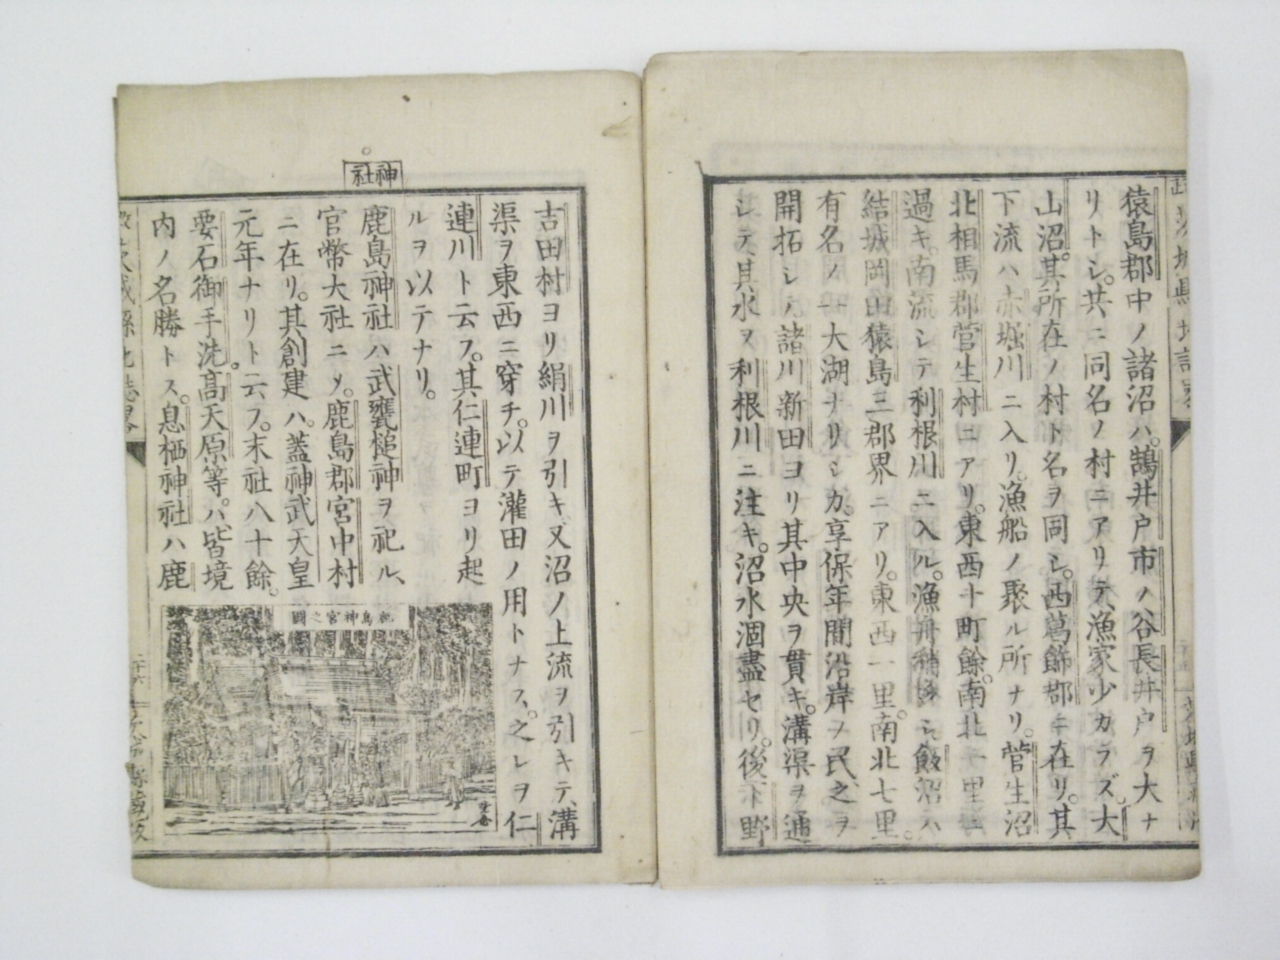 猿島郡中ノ諸沼ハ。鵠井戸市ノ谷長井戸ヲ大ナ
リトシ。共ニ同名ノ村ニアリテ漁家少カラズ。大
山沼。其所在ノ村ト名ヲ同シ。西葛飾郡ニ在リ。其
下流ハ赤堀川ニ入リ。漁船ノ聚ル所ナリ。菅生沼
北相馬郡菅生村ニアリ。東西十町餘。南北一里
過キ。南流シテ利根川ニ入ル。漁舟稍多シ飯沼ハ
結城岡田猿島三郡界ニアリ。東西一里。南北七里。
有名ノ一大湖ナリシカ。享保年間沿岸ノ民。之ヲ
開拓シテ諸川新田ヨリ其中央ヲ貫キ。溝渠ヲ通
シテ其水ヲ利根川ニ注キ。沼水涸盡セリ。後下野
吉田村ヨリ絹川ヲ引キ。又沼ノ上流ヲ引キテ、溝
渠ヲ東西ニ穿チ。以テ灌田ノ用トナス。之レヲ仁
連川ト云フ。其仁連町ヨリ起
ルヲ以テナリ。
神社
鹿島神社ハ武甕槌神ヲ祀ル、
官幣大社ニシテ。鹿島郡宮中村
ニ在リ。其創建ハ。蓋神武天皇
元年ナリト云フ。末社八十餘。
要石御手洗。高天原等。ハ、皆境
内ノ名勝トス。息栖神社ハ鹿
鹿島神宮之圖